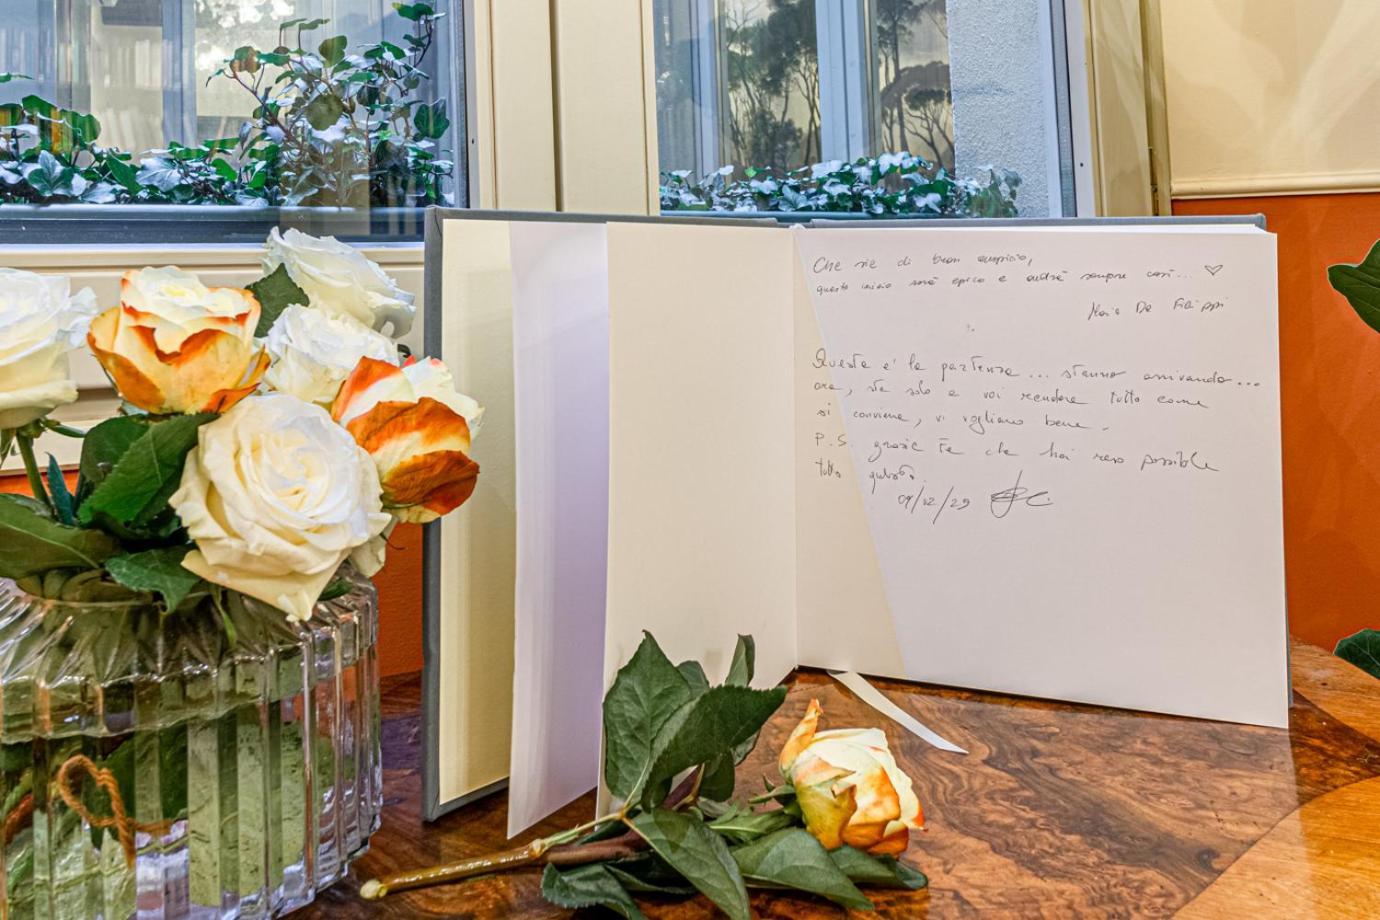 Che sie di buon auspicio,
questo inizio sarà epico e andrà sempre così... ♡
Maria De Filippi
Questa é la partenza ... stanno arrivando...
ora, sta solo a voi rendere tutto come
si conviene, vi vogliamo bene.
P.S. grazie Te che hai reso possibile
tutto questo.
09/12/23